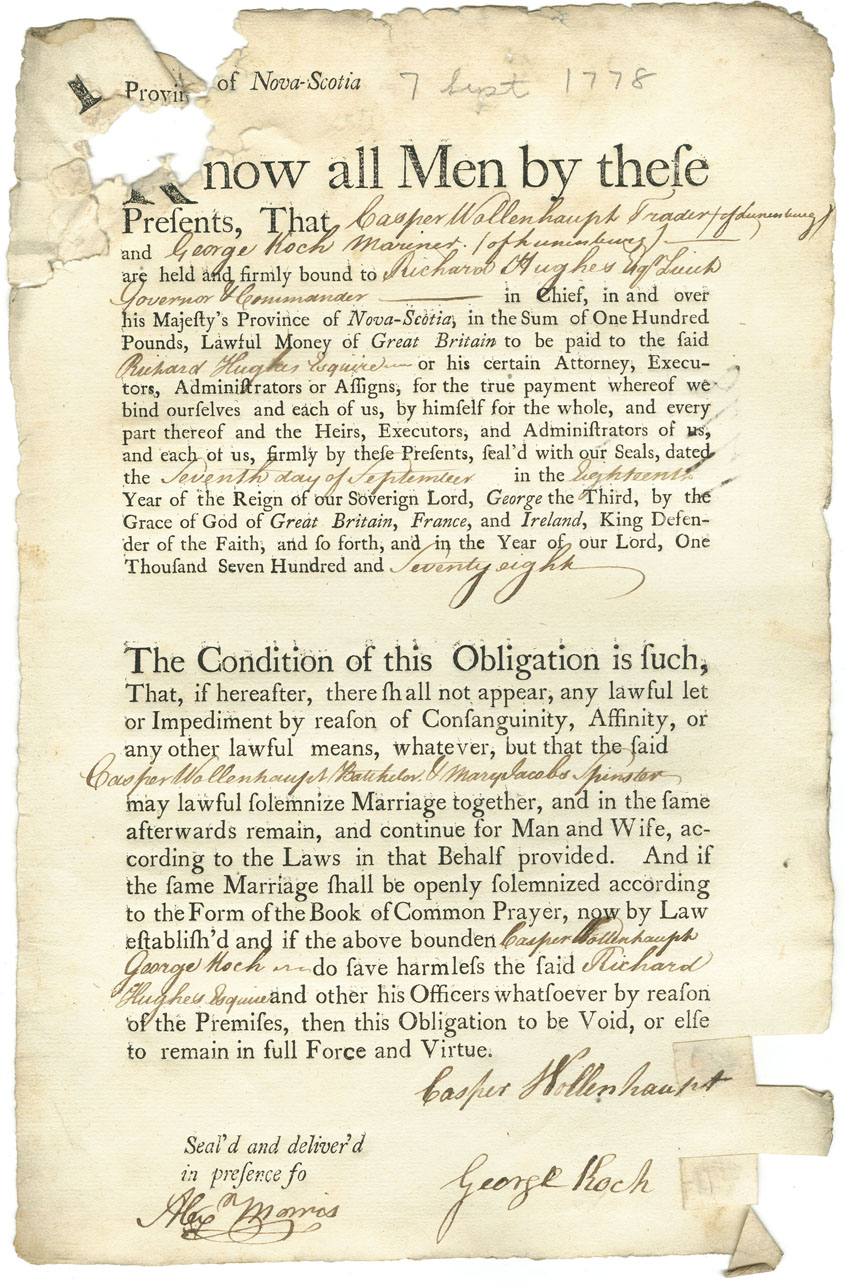 Provin of Nova-Scotia 7 Sept 1778
Know all Men by theſe
Preſents, That Casper Wollenhaupt Trader (of Lunenburg)
and George Koch Mariner. (of Lunenburg)
are held and firmly bound to Richard Hughes Esqr. Lieut
Governor & Commander in Chief, in and over
his Majeſty's Province of Nova-Scotia, in the Sum of One Hundred
Pounds, Lawful Money of Great Britain to be paid to the ſaid
Richard Hughes Esquire or his certain Attorney, Execu-
tors, Adminiſtrators or Aſſigns, for the true payment whereof we
bind ourſelves and each of us, by himſelf for the whole, and every
part thereof and the Heirs, Executors, and Adminiſtrators of us,
and each of us, firmly by theſe Preſents, ſeal'd with our Seals, dated
the Seventh day of September in the Eighteenth
Year of the Reign of our Soverign Lord, George the Third, by the
Grace of God of Great Britain, France, and Ireland, King Defen-
der of the Faith, and ſo forth, and in the Year of our Lord, One
Thouſand Seven Hundred and Seventy eight
The Condition of this Obligation is ſuch,
That, if hereafter, there ſhall not appear, any lawful let
or Impediment by reaſon of Conſanguinity, Affinity, or
any other lawful means, whatever, but that the ſaid
Casper Wollenhaupt Batchelor & Mary Jacobs Spinster
may lawful ſolemnize Marriage together, and in the ſame
afterwards remain, and continue for Man and Wife, ac-
cording to the Laws in that Behalf provided. And if
the ſame Marriage ſhall be openly ſolemnized according
to the Form of the Book of Common Prayer, now by Law
eſtabliſh'd and if the above bounden Casper Wollenhaupt
George Koch do ſave harmleſs the ſaid Richard
Hughes Esquire and other his Officers whatſoever by reaſon
of the Premiſes, then this Obligation to be Void, or elſe
to remain in full Force and Virtue.
Casper Wollenhaupt
Seal'd and deliver'd
in preſence fo
George Koch
Alexr Morris